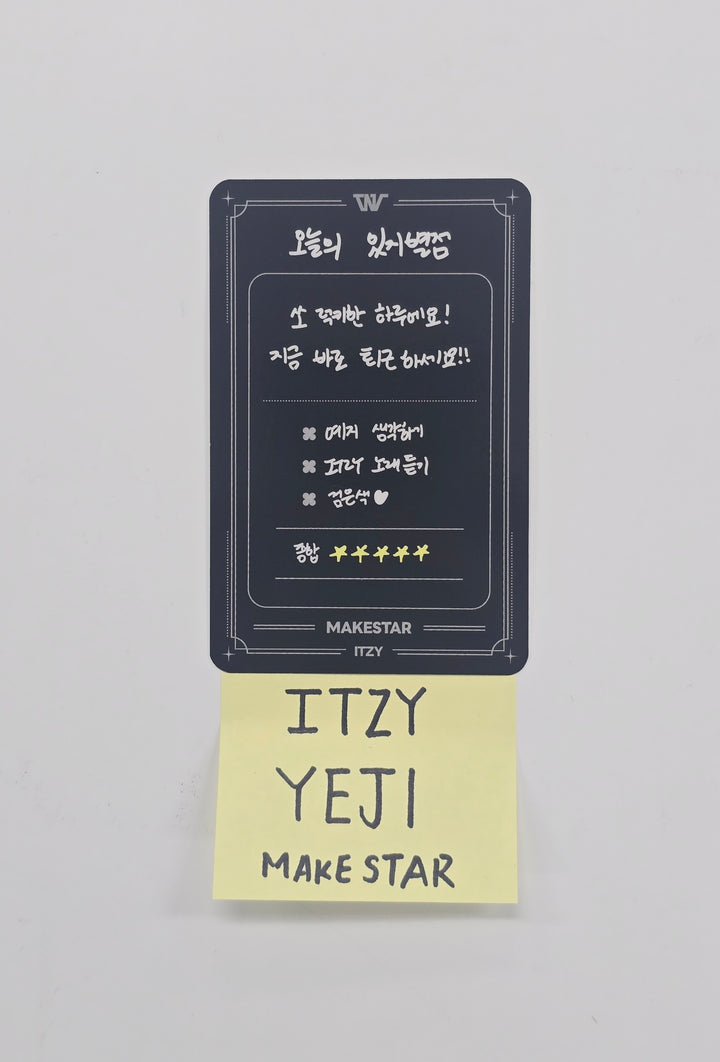 오늘의 있지별점
쏘 럭키한 하루에요!
지금 바로 퇴근하세요!!
예지 생각하기
ITZY 노래듣기
검은색♥
종합 ★★★★★
MAKESTAR
ITZY
ITZY
YEJI
MAKESTAR